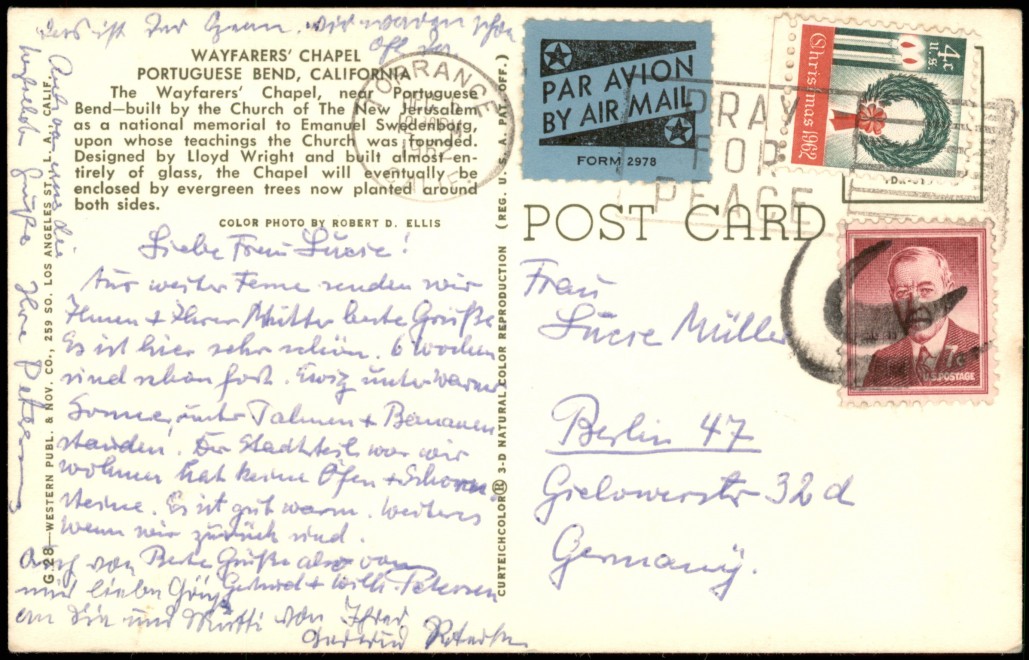 Das ist der Grau. wir waren schon
oft da
WAYFARERS' CHAPEL
PORTUGUESE BEND, CALIFORNIA
The Wayfarers' Chapel, near Portuguese
Bend—built by the Church of The New Jerusalem
as a national memorial to Emanuel Swedenborg,
upon whose teachings the Church was founded.
Designed by Lloyd Wright and built almost en-
tirely of glass, the Chapel will eventually be
enclosed by evergreen trees now planted around
both sides.
COLOR PHOTO BY ROBERT D. ELLIS
Liebe Frau Lucie!
Aus weiter Ferne senden wir
Ihnen + Ihrer Mutter beste Grüße
Es ist hier sehr schön. 6 Wochen
sind schon fort. Ewig unter warmer
Sonne, unter Palmen + Bananen
stauden! Der Stadtteil wo wir
wohnen hat keine Öfen + Schorn
steine. Es ist gut warm. Weiteres
wenn wir zurück sind.
Beste Grüße also von
Gertrud + Willi Petersen
Auch von
mir liebe Grüße
an Sie und Mutti von Ihrer
Gertrud Petersen
Auch von
herzlichste Grüße Ihre Petersen
G.28—WESTERN PUBL. & NOV. CO., 259 SO. LOS ANGELES ST., L. A., CALIF.
CURTEICHCOLOR® 3-D NATURAL COLOR REPRODUCTION (REG. U. S. A. PAT. OFF.)
TORRANCE
CALIF
PAR AVION
BY AIR MAIL
FORM 2978
PRAY
FOR
PEACE
4¢
U.S.
Christmas 1962
POST CARD
7¢
U.S. POSTAGE
Frau
Lucie Müller
Berlin 47
Gielowerstr 32d
Germany.